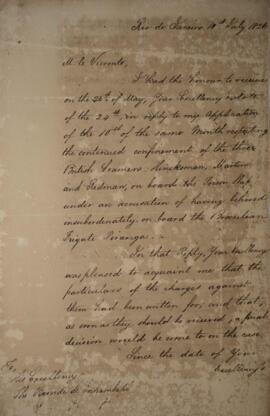 Rio de Janeiro 10th July 1826
M. le Vicomte,
I had the Honour to receive
on the 26th of May, Your Excellency's note
of the 24th, in reply to my Application
of the 10th of the same Month respecting
the continued confinement of the three
British Seamen Hincksman, Martin
and Redman, on board the Prison Ship,
under an accusation of having behaved
insubordinately, on board the Brazilian
Frigate Piranga.
In that Reply, Your Excellency
was pleased to acquaint me that the
particulars of the charges against
them had been written for, and that,
as soon as they should be received, a final
decision would be come to on the case.
Since the date of Your
Excellency's
His Excellency
The Viscount de Inhambupe